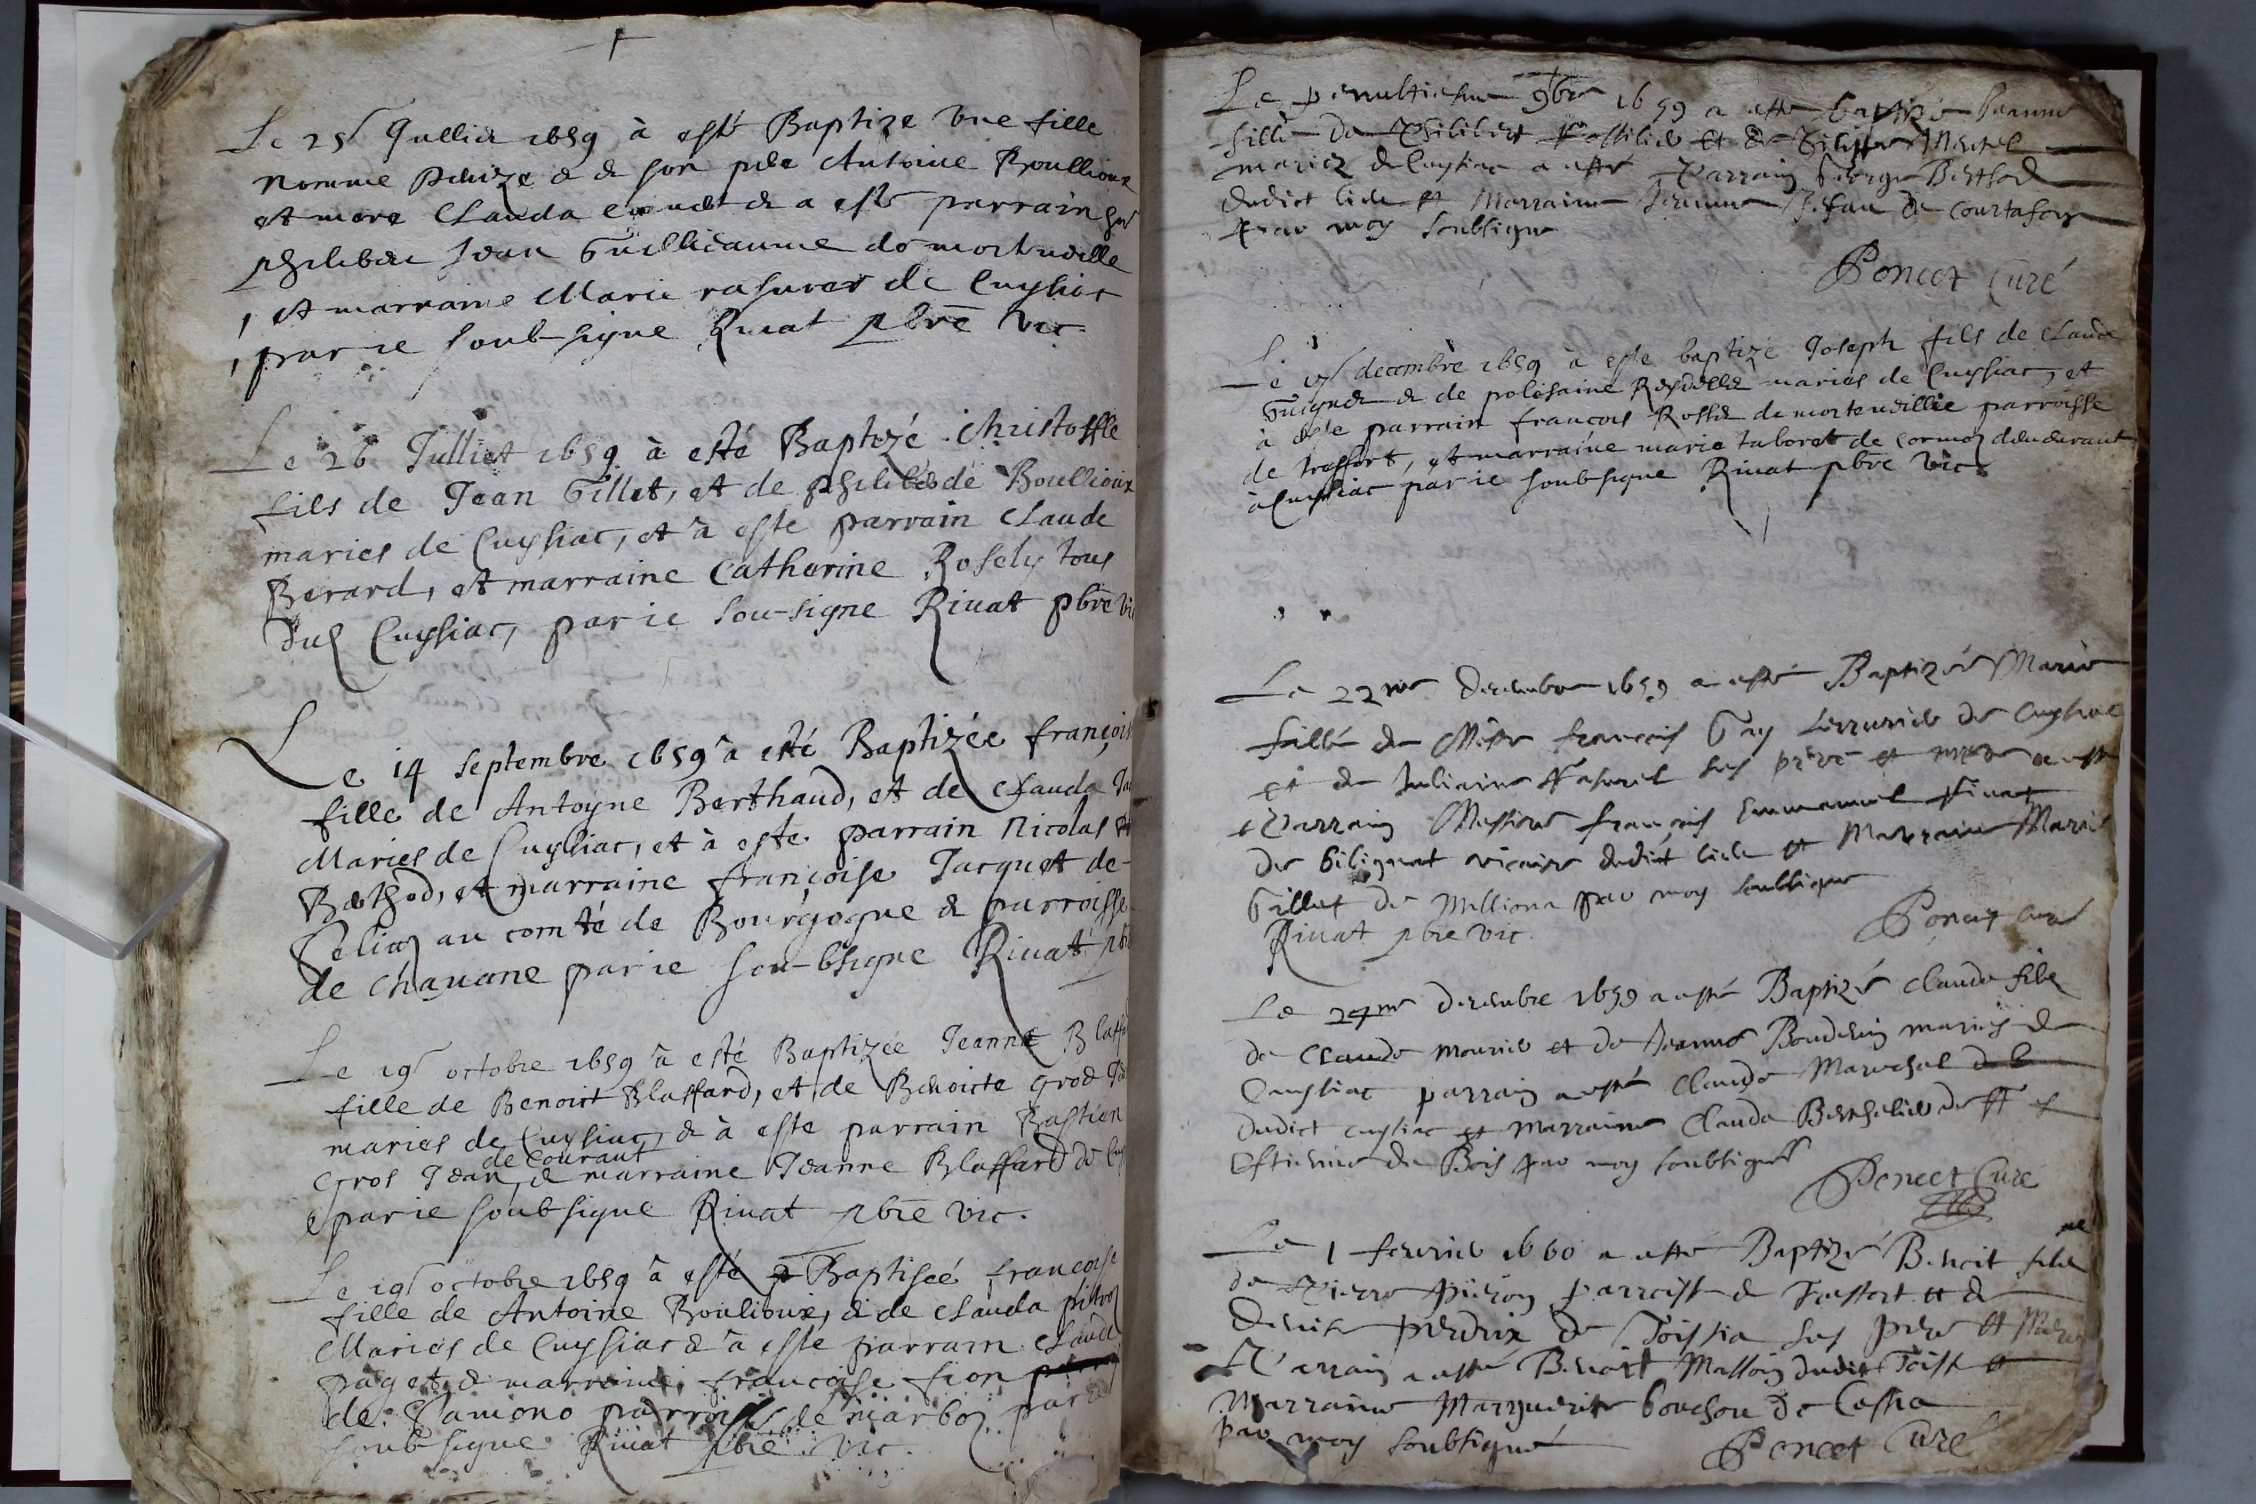 Le 25 Jullie 1659 à esté Baptize vne fille
nomme & de son pere Antoine Boullioux
et mere Clauda a esté parrain
philibert Jean Guillieaume de mortueille
et marraine Marie de Cuysiat
par ie soubsigne Riuat pbrē vic.
Le 26 Julliet 1659 à esté Baptizé Christoffle
fils de Jean Gillet, et de philiberde Boullioux
maries de Cuysiac, et à este parrain Claude
Berard, et marraine Catherine Rosely tous
dud Cuysiac, par ie sou-signe Riuat pbrē vic
Le 14 septembre 1659 à esté Baptizée françois
fille de Antoyne Berthaud, et de Clauda
Maries de Cuysiac, et à este parrain Nicolas
Berthod, et marraine françoise Jacquet de
au comté de Bourgogne & parroisse
de Chauane par ie sou-bsigne Riuat pbr
Le 19 octobre 1659 à esté Baptizée Jeanne Blaffa
fille de Benoict Blaffard, et de Benoicte gros
maries de Cuysiac, & à este parrain Bastien
de Courant
gros Jean, & marraine Jeanne Blaffard de Cuy
par ie soubsigne Riuat pbrē vic.
Le 19 octobre 1659 à esté Baptiseé francoise
fille de Antoine Boulioux, & de Clauda
Maries de Cuysiac & à este parrain Claude
paget & marraine, francoise fion
de parroisse de marboz par
soubsigne Riuat pbrē vic.
Le penultiesme 9bre 1659 a esté baptizé Jeanne
fille de Philibert et de
mariez de Cuysiac a esté Parrain George Berthod
dudict lieu et Marraine Jeanne de Courtafon
par moy soubsigne
Poncet Curé
Le decembre 1659 à este baptizé Joseph fils de Claude
& de polisaine maries de Cuysiac, et
à este parrain francois Rosset de morteueillie parroisse
de treffort, et marraine marie taboret de cormoz demeurant
à Cuysiac par ie soubsigne Riuat pbrē vic.
Le 22me decembre 1659 a esté Baptizée Marie
fille de Mestre francois Gay serrurier de Cuysiac
et de Juliaine ses père et mere a esté
Parrain Messire françois Emmanuel Riuat
de vicaire dudict lieu et Marraine Marie
Gillet de Milliona par moy soubsigne
Riuat pbre vic. Poncet Curé
Le 24me decembre 1659 a esté Baptizé Claude filz
de Claude mourier et de Jeanne Boudevin mariés de
Cuysiac parrain a esté Claude Mareschal
dudict cuysiac et Marraine Claude Berthelier de St
Estienne du Bois par moy soubsigné
Poncet Curé
Le 1 feurier 1660 a esté Baptizé Benoit filz
de Pierre parroisse de Treffort et de
denise perdrix de Toissia ses pere et Mere
Parrain a esté Benoict Masson dudit Toiss et
Marraine Marguerite bouchou de Cessia
par moy soubsigné Poncet Curé